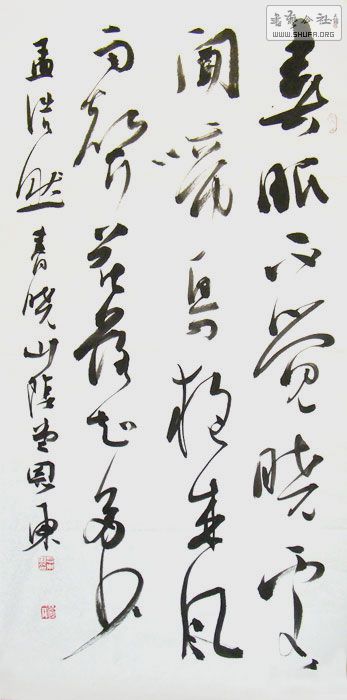 春眠不觉晓处々
闻啼鸟夜来风
雨声花落知多少
孟浩然春晓山阴恩东
公社
WWW.SHUFA.ORG